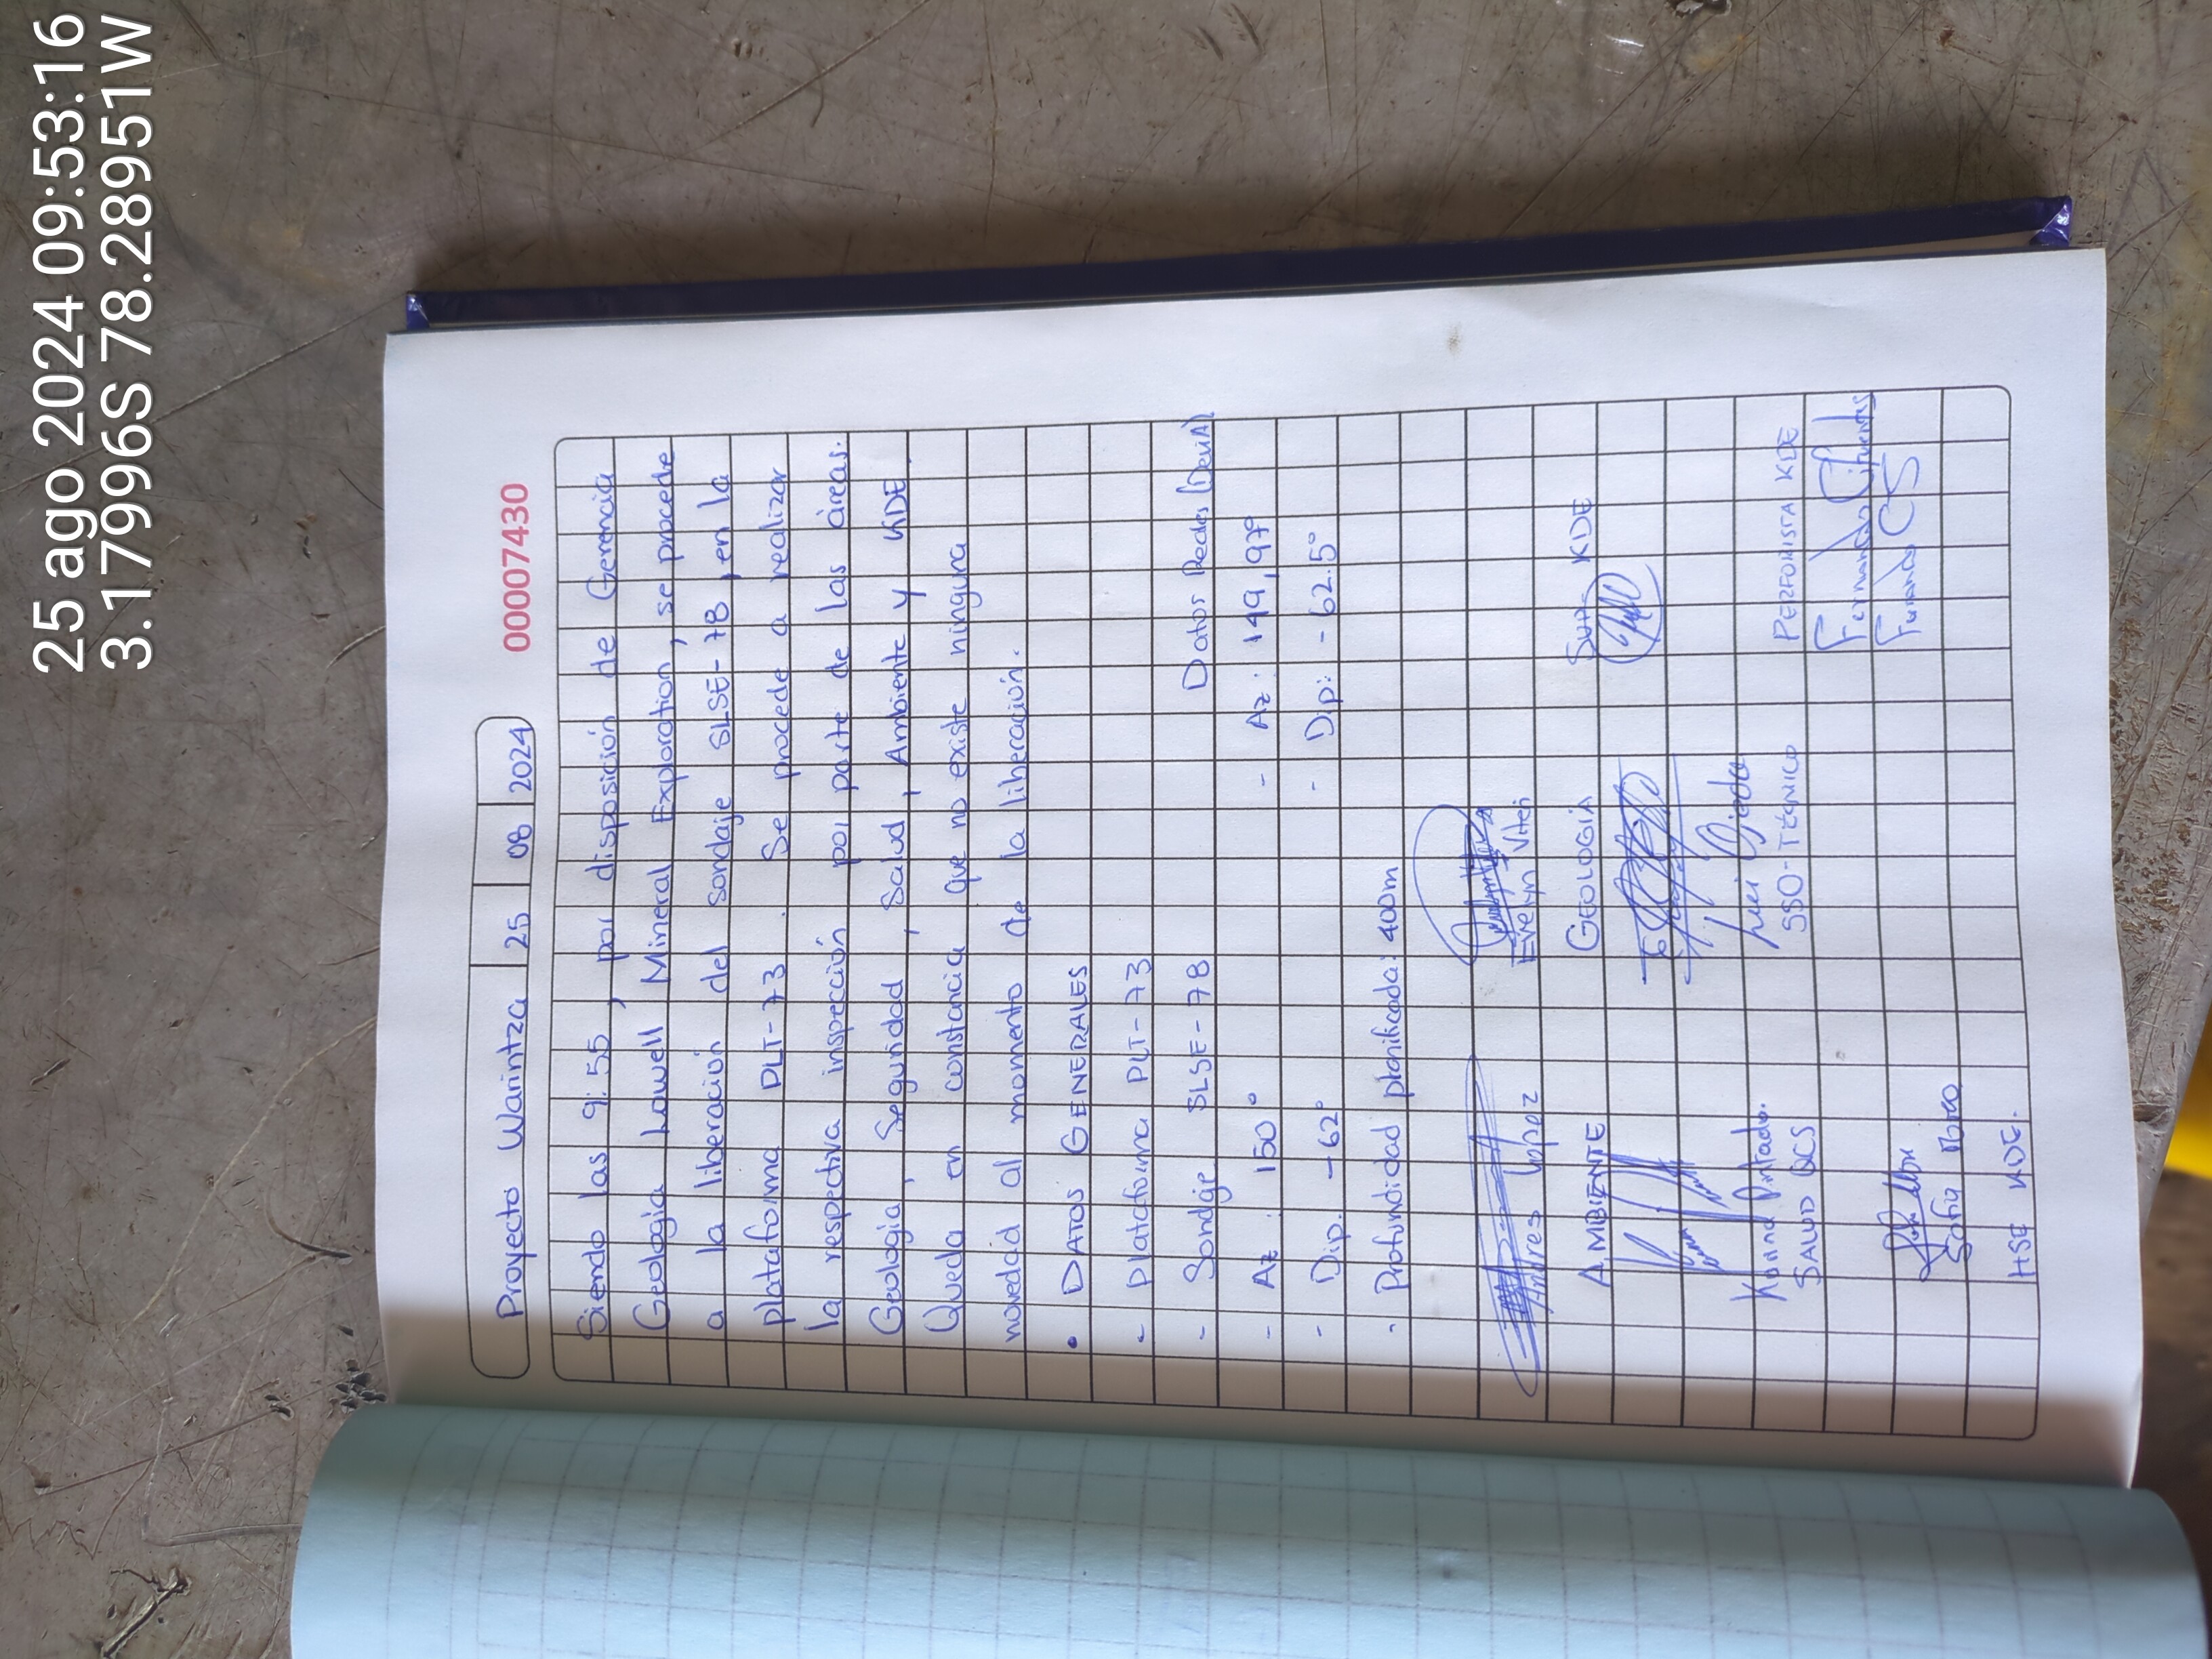 25 ago 2024 09:53:16
3.17996S 78.28951W
00007430
Proyecto Warintza 25 08 2024
Siendo las 9:55, por disposición de Gerencia
Geología Lowell Mineral Exploration, se procede
a la liberación del sondaje SLSE-78, en la
plataforma PLT-73. Se procede a realizar
la respectiva inspección por parte de las áreas.
Geología, Seguridad, Salud, Ambiente y KDE.
Queda en constancia que no existe ninguna
novedad al momento de la liberación.
• DATOS GENERALES
- Plataforma PLT-73
- Sondaje SLSE-78 Datos Reales
- Az: 150° - Az: 149,97°
- Dip. -62° - Dip: -62.5°
- Profundidad planificada: 400m
Andres Lopez
AMBIENTE
Evelyn
GEOLOGÍA
Sup. KDE
Pintado.
SALUD QCS
Ojeda
SSO-TÉCNICO
PERFORISTA KDE
Fernando Cifuentes
Sofia
HSE KDE.